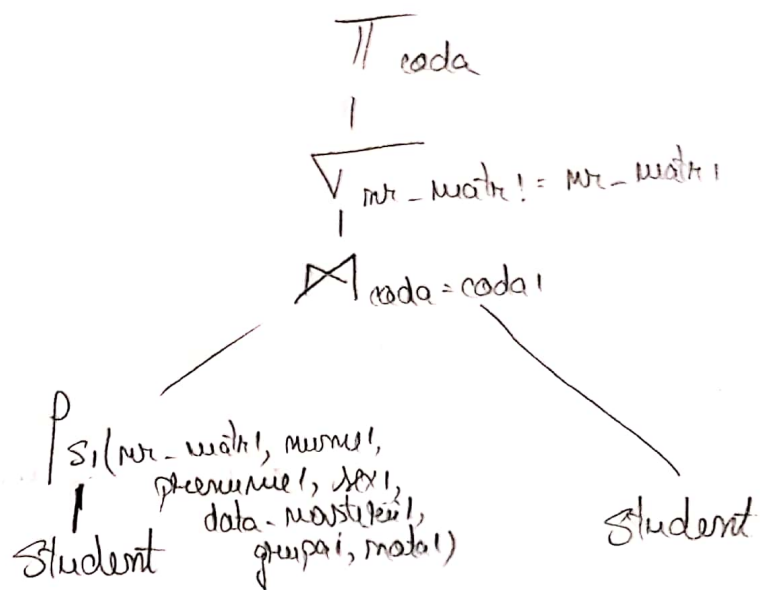 Π coda
σ nr_matr != nr_matr1
⋈ coda = coda1
ρ S1(nr_matr1, nume1,
prenume1, sex1,
data_nasterii1,
grupa1, nota1)
Student
Student